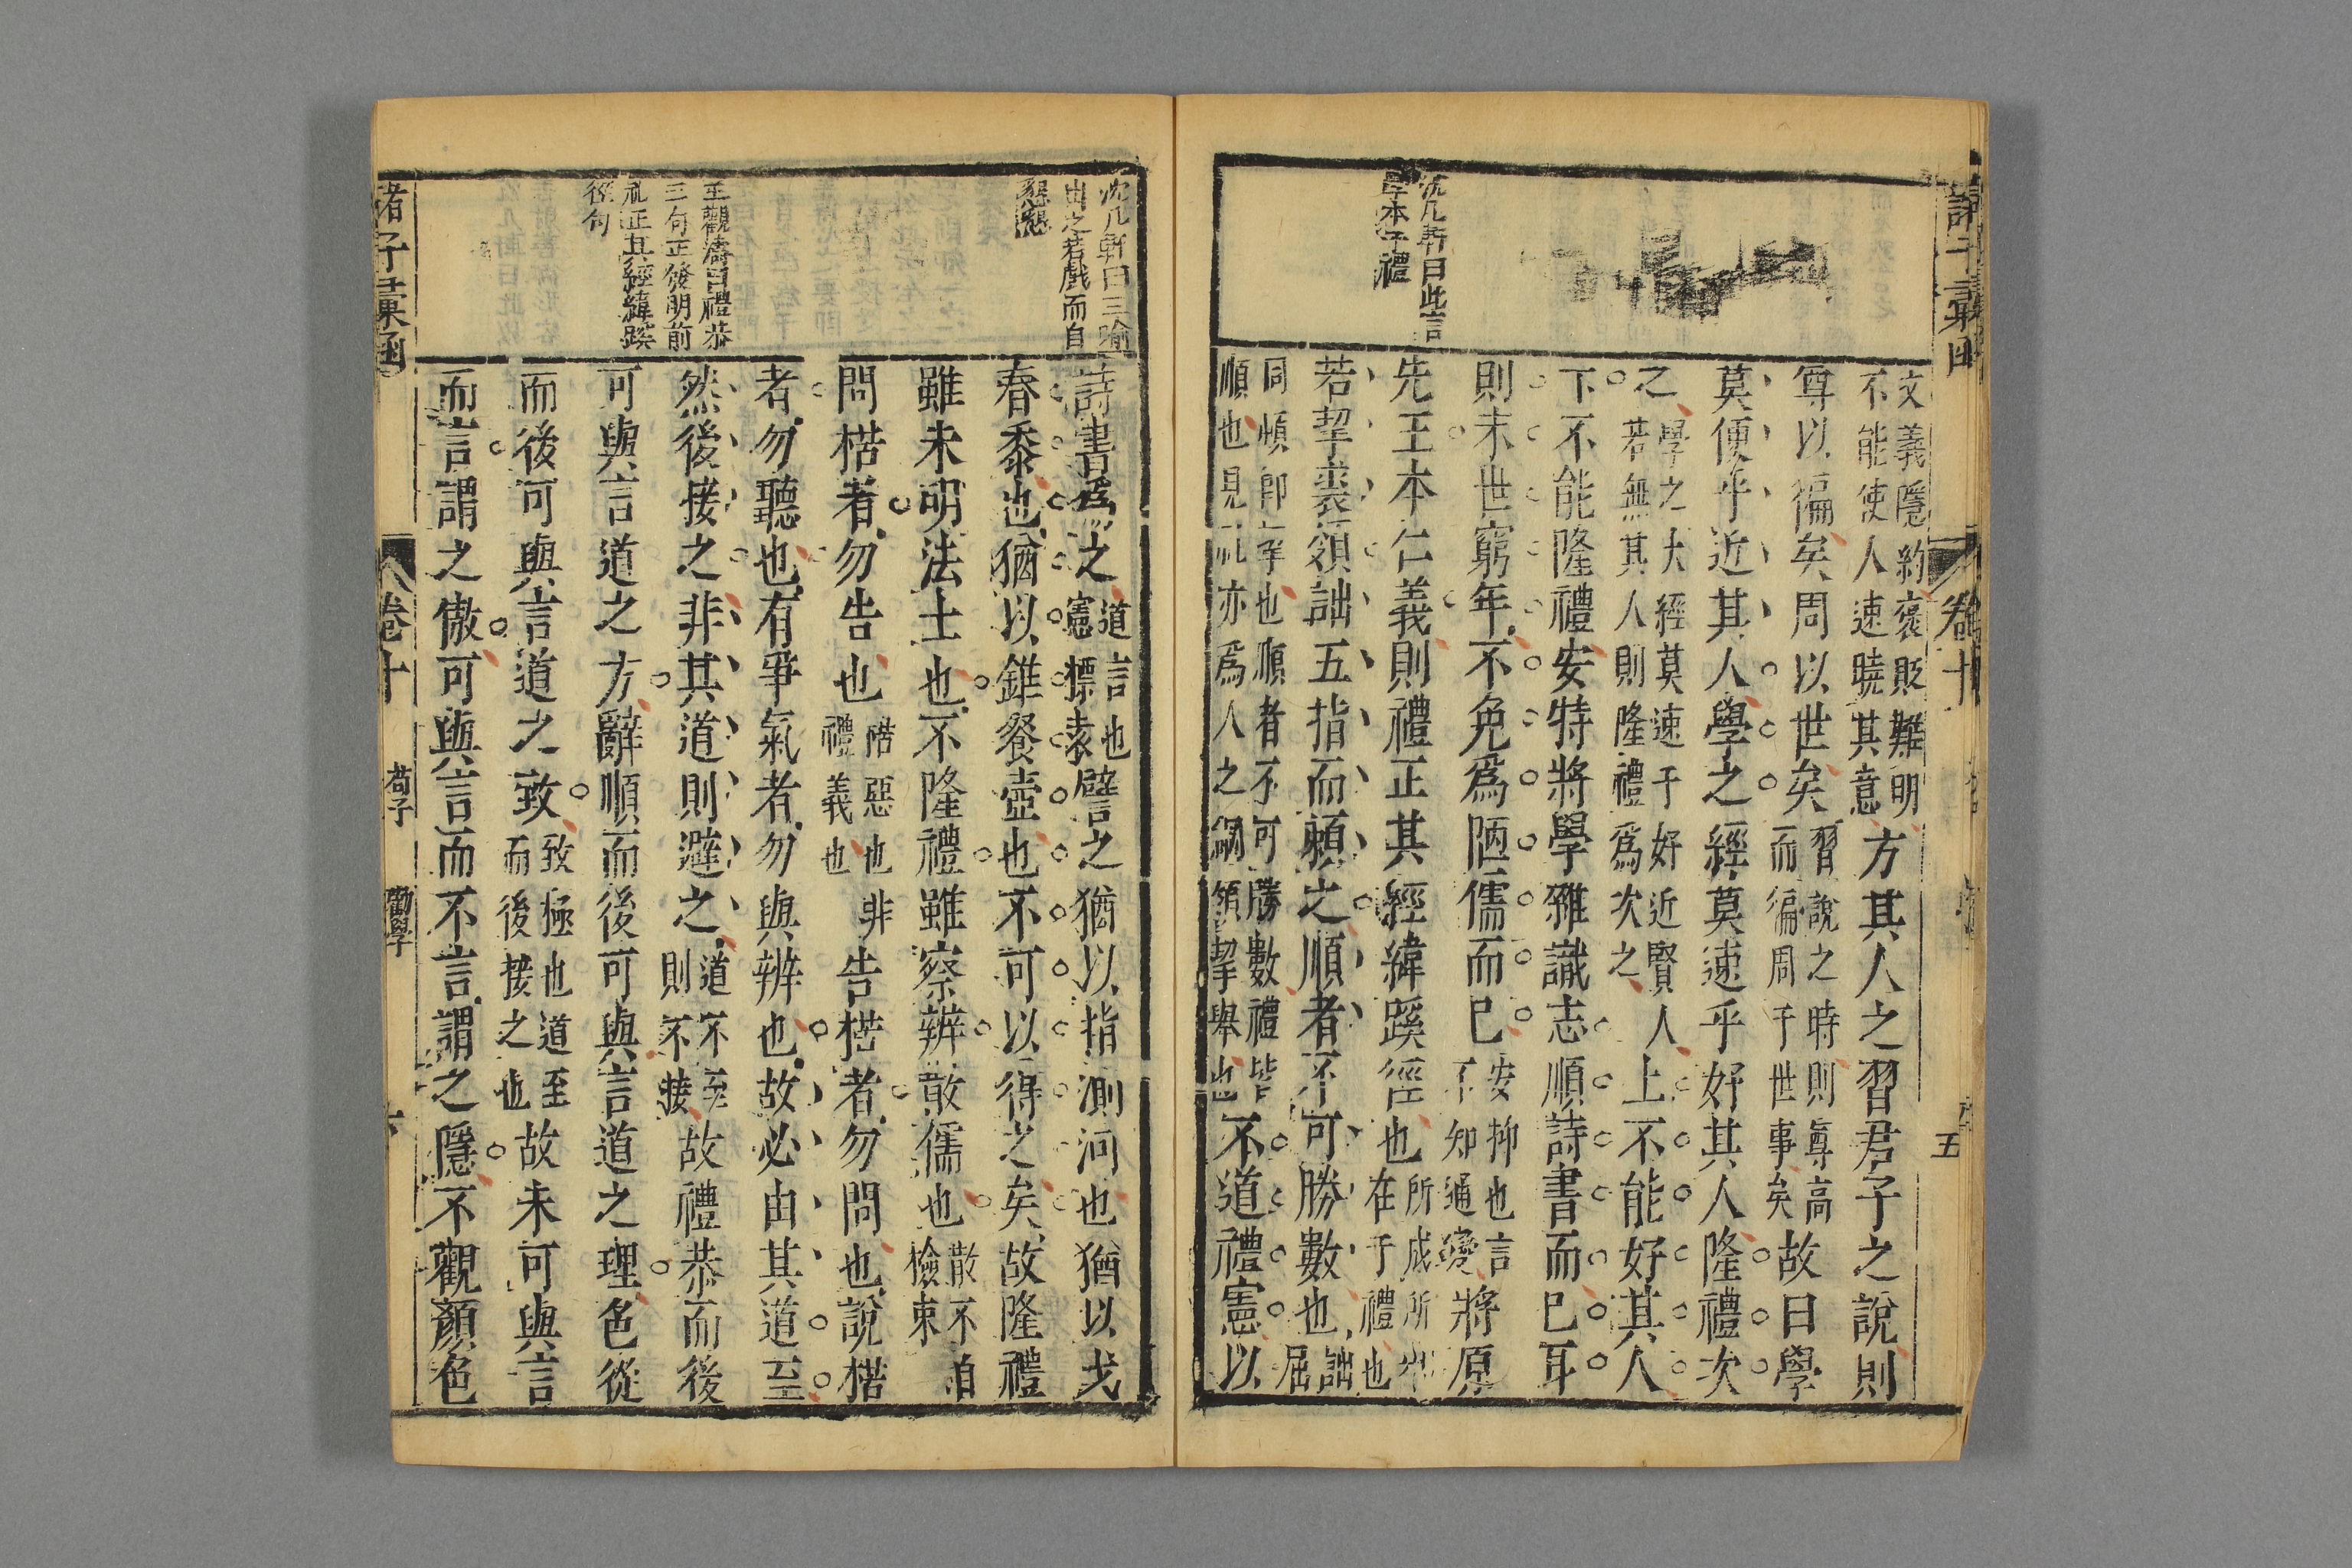 沈几軒曰此言
學本于禮
文義隱約褒貶難明
不能使人速曉其意
方其人之習君子之說則
尊以徧矣周以世矣
習說之時則尊高
而徧周于世事矣
故曰學
莫便乎近其人學之經莫速乎好其人隆禮次
之
學之大經莫速于好近賢人
若無其人則隆禮爲次之
上不能好其人
下不能隆禮安特將學雜識志順詩書而已耳
則末世窮年不免爲陋儒而已
安抑也言
不知通變
將原
先王本仁義則禮正其經緯蹊徑也
所成所出
在于禮也
若挈裘領詘五指而頓之順者不可勝數也
詘
屈
同頓卽挈也順者不可勝數禮皆
順也見礼亦爲人之綱領挈舉也
不道禮憲以
諸子彙函
卷十
五
沈几軒曰三喻
出之若戲而自
懇懇
王觀濤曰禮恭
三句正發明前
礼正其經緯蹊
徑句
詩書爲之
道言也
憲標表
譬之猶以指測河也猶以戈
舂黍也猶以錐飱壺也不可以得之矣故隆禮
雖未明法士也不隆禮雖察辨散儒也
散不自
檢束
問楛者勿告也
楛惡也非
禮義也
告楛者勿問也說楛
者勿聽也有爭氣者勿與辨也故必由其道至
然後接之非其道則避之
道不至
則不接
故禮恭而後
可與言道之方辭順而後可與言道之理色從
而後可與言道之致
致極也道至
而後接之也
故未可與言
而言謂之傲可與言而不言謂之隱不觀顏色
諸子彙函
卷十
荀子
勸學